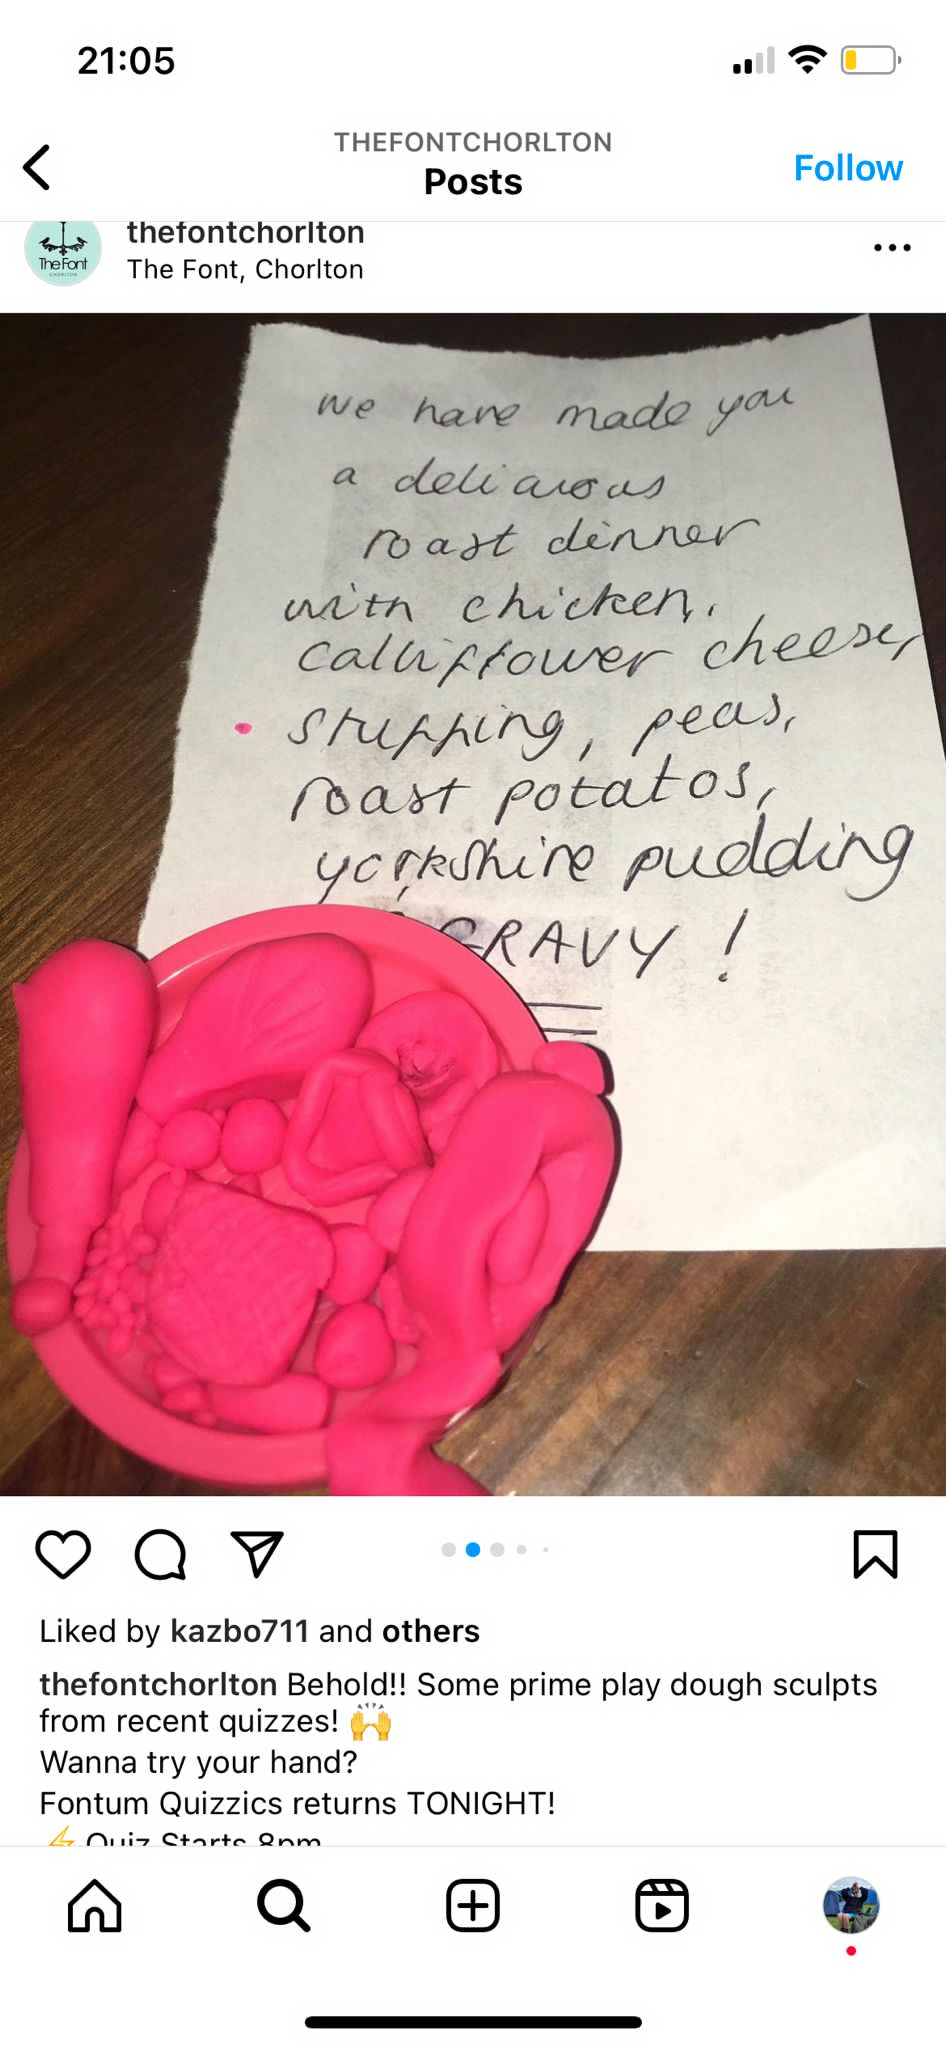 21:05
THEFONTCHORLTON
Posts
Follow
thefontchorlton
The Font, Chorlton
The Font
CHORLTON
we have made you
a deliciouous
roast dinner
with chicken,
calliflower cheese,
stuffing, peas,
roast potatos,
yorkshire pudding
GRAVY !
Liked by kazbo711 and others
thefontchorlton Behold!! Some prime play dough sculpts
from recent quizzes! 🙌
Wanna try your hand?
Fontum Quizzics returns TONIGHT!
⚡ Quiz Starts 8pm